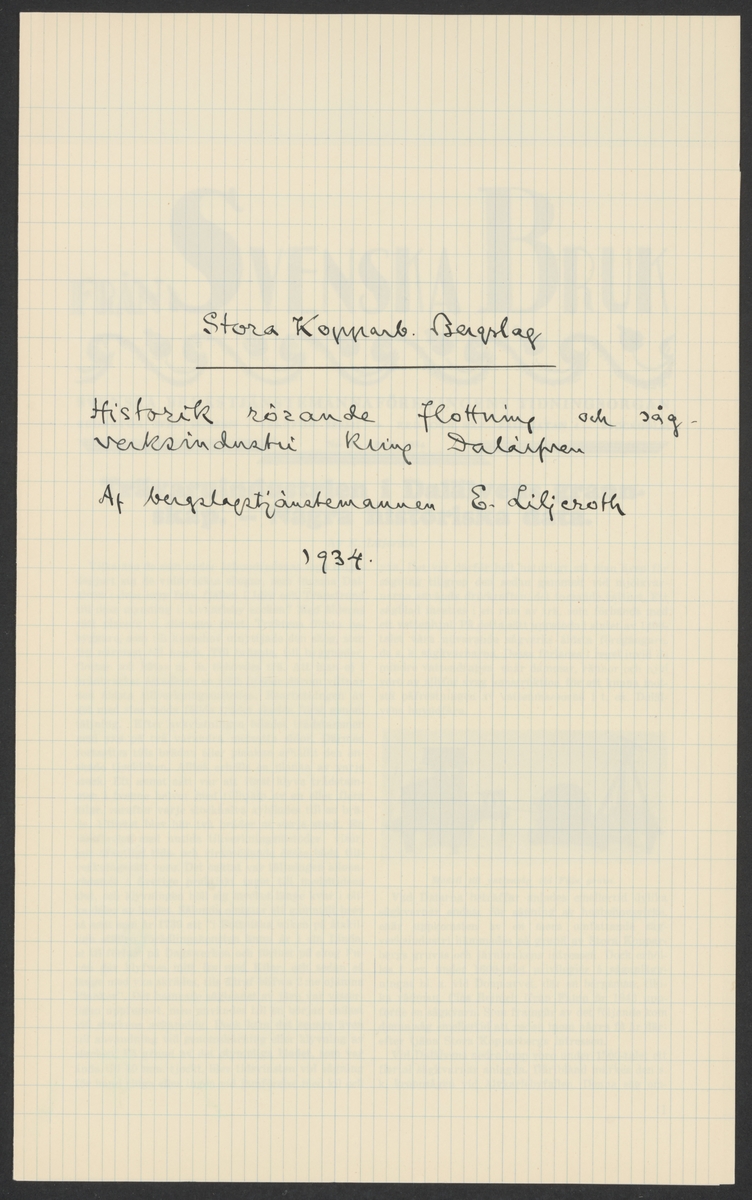 Stora Kopparb. Bergslag
Historik rörande flottning och såg-
verksindustri kring Dalälfven
Af bergslagstjänstemannen E. Liljeroth
1934.
SVENSKA BRUK